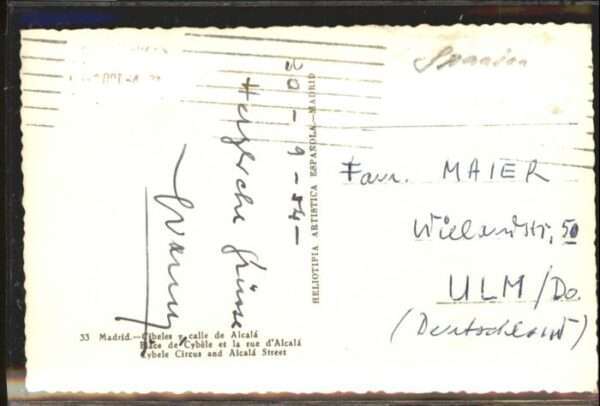 Spanien
20-9-54-
Herzliche Grüsse
HELIOTIPIA ARTISTICA ESPAÑOLA.-MADRID
Fam. MAIER
Wielandstr. 50
ULM/Do.
(Deutschland)
33 Madrid.-Cibeles y calle de Alcalá
Place de Cybèle et la rue d'Alcalá
Cybele Circus and Alcalá Street